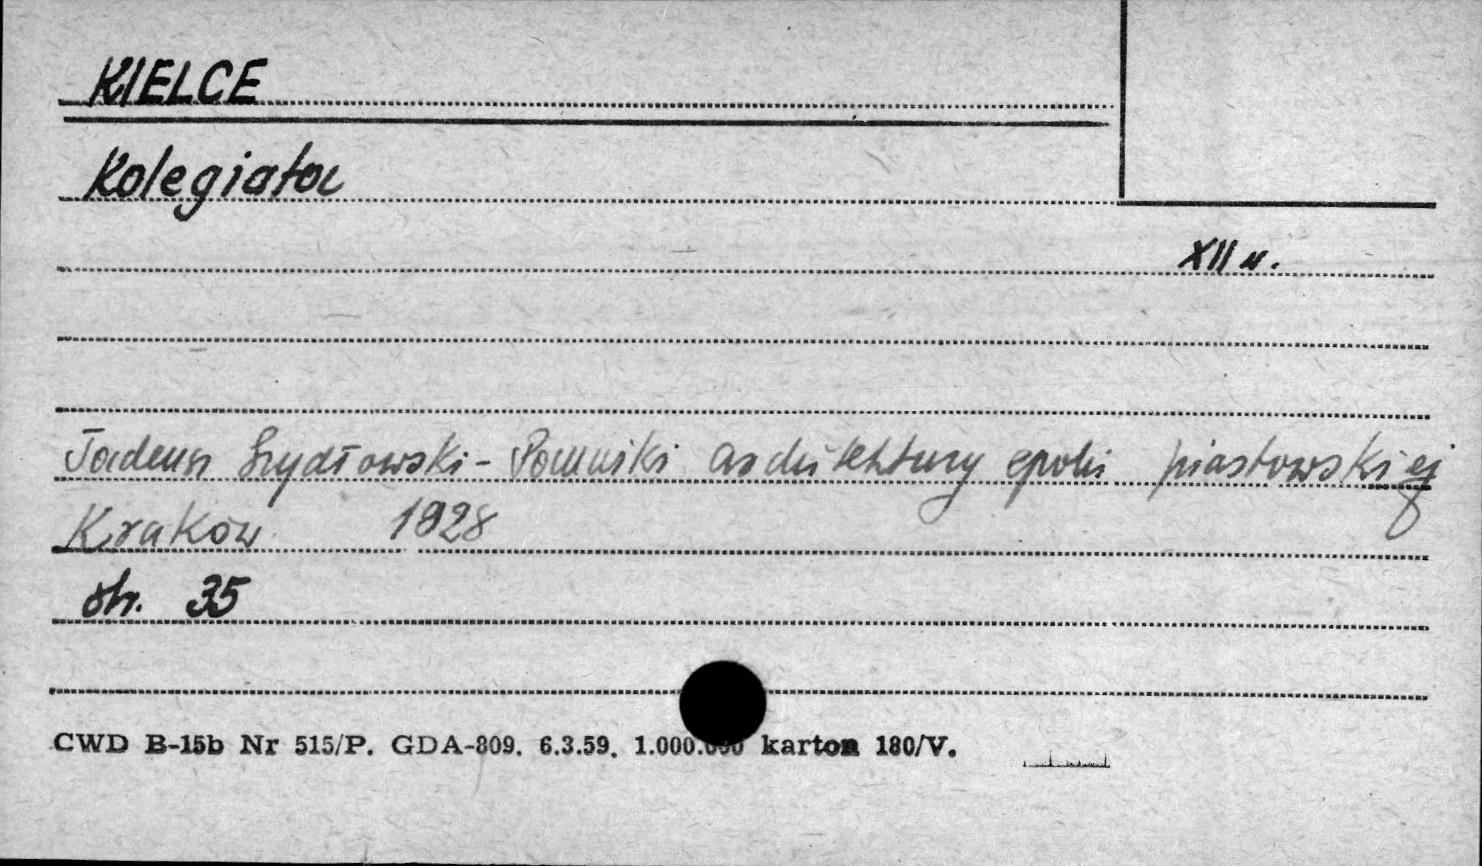 KIELCE
Kolegiata
XII w.
Tadeusz Szydłowski - Pomniki architektury epoki piastowskiej
Kraków 1928
str. 35
CWD B-15b Nr 515/P. GDA-809. 6.3.59. 1.000.000 karton 180/V.